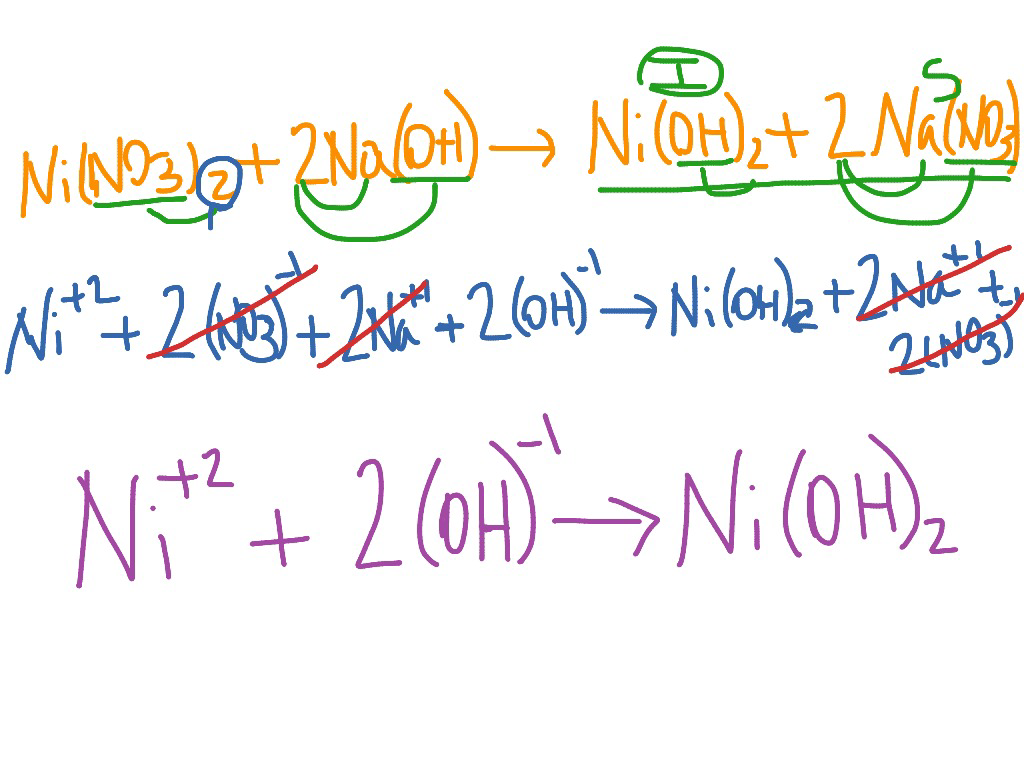 I S
Ni(NO₃)₂ + 2Na(OH) → Ni(OH)₂ + 2Na(NO₃)
Ni⁺² + 2(NO₃)⁻¹ + 2Na⁺¹ + 2(OH)⁻¹ → Ni(OH)₂ + 2Na⁺¹ +
2(NO₃)⁻¹
Ni⁺² + 2(OH)⁻¹ → Ni(OH)₂